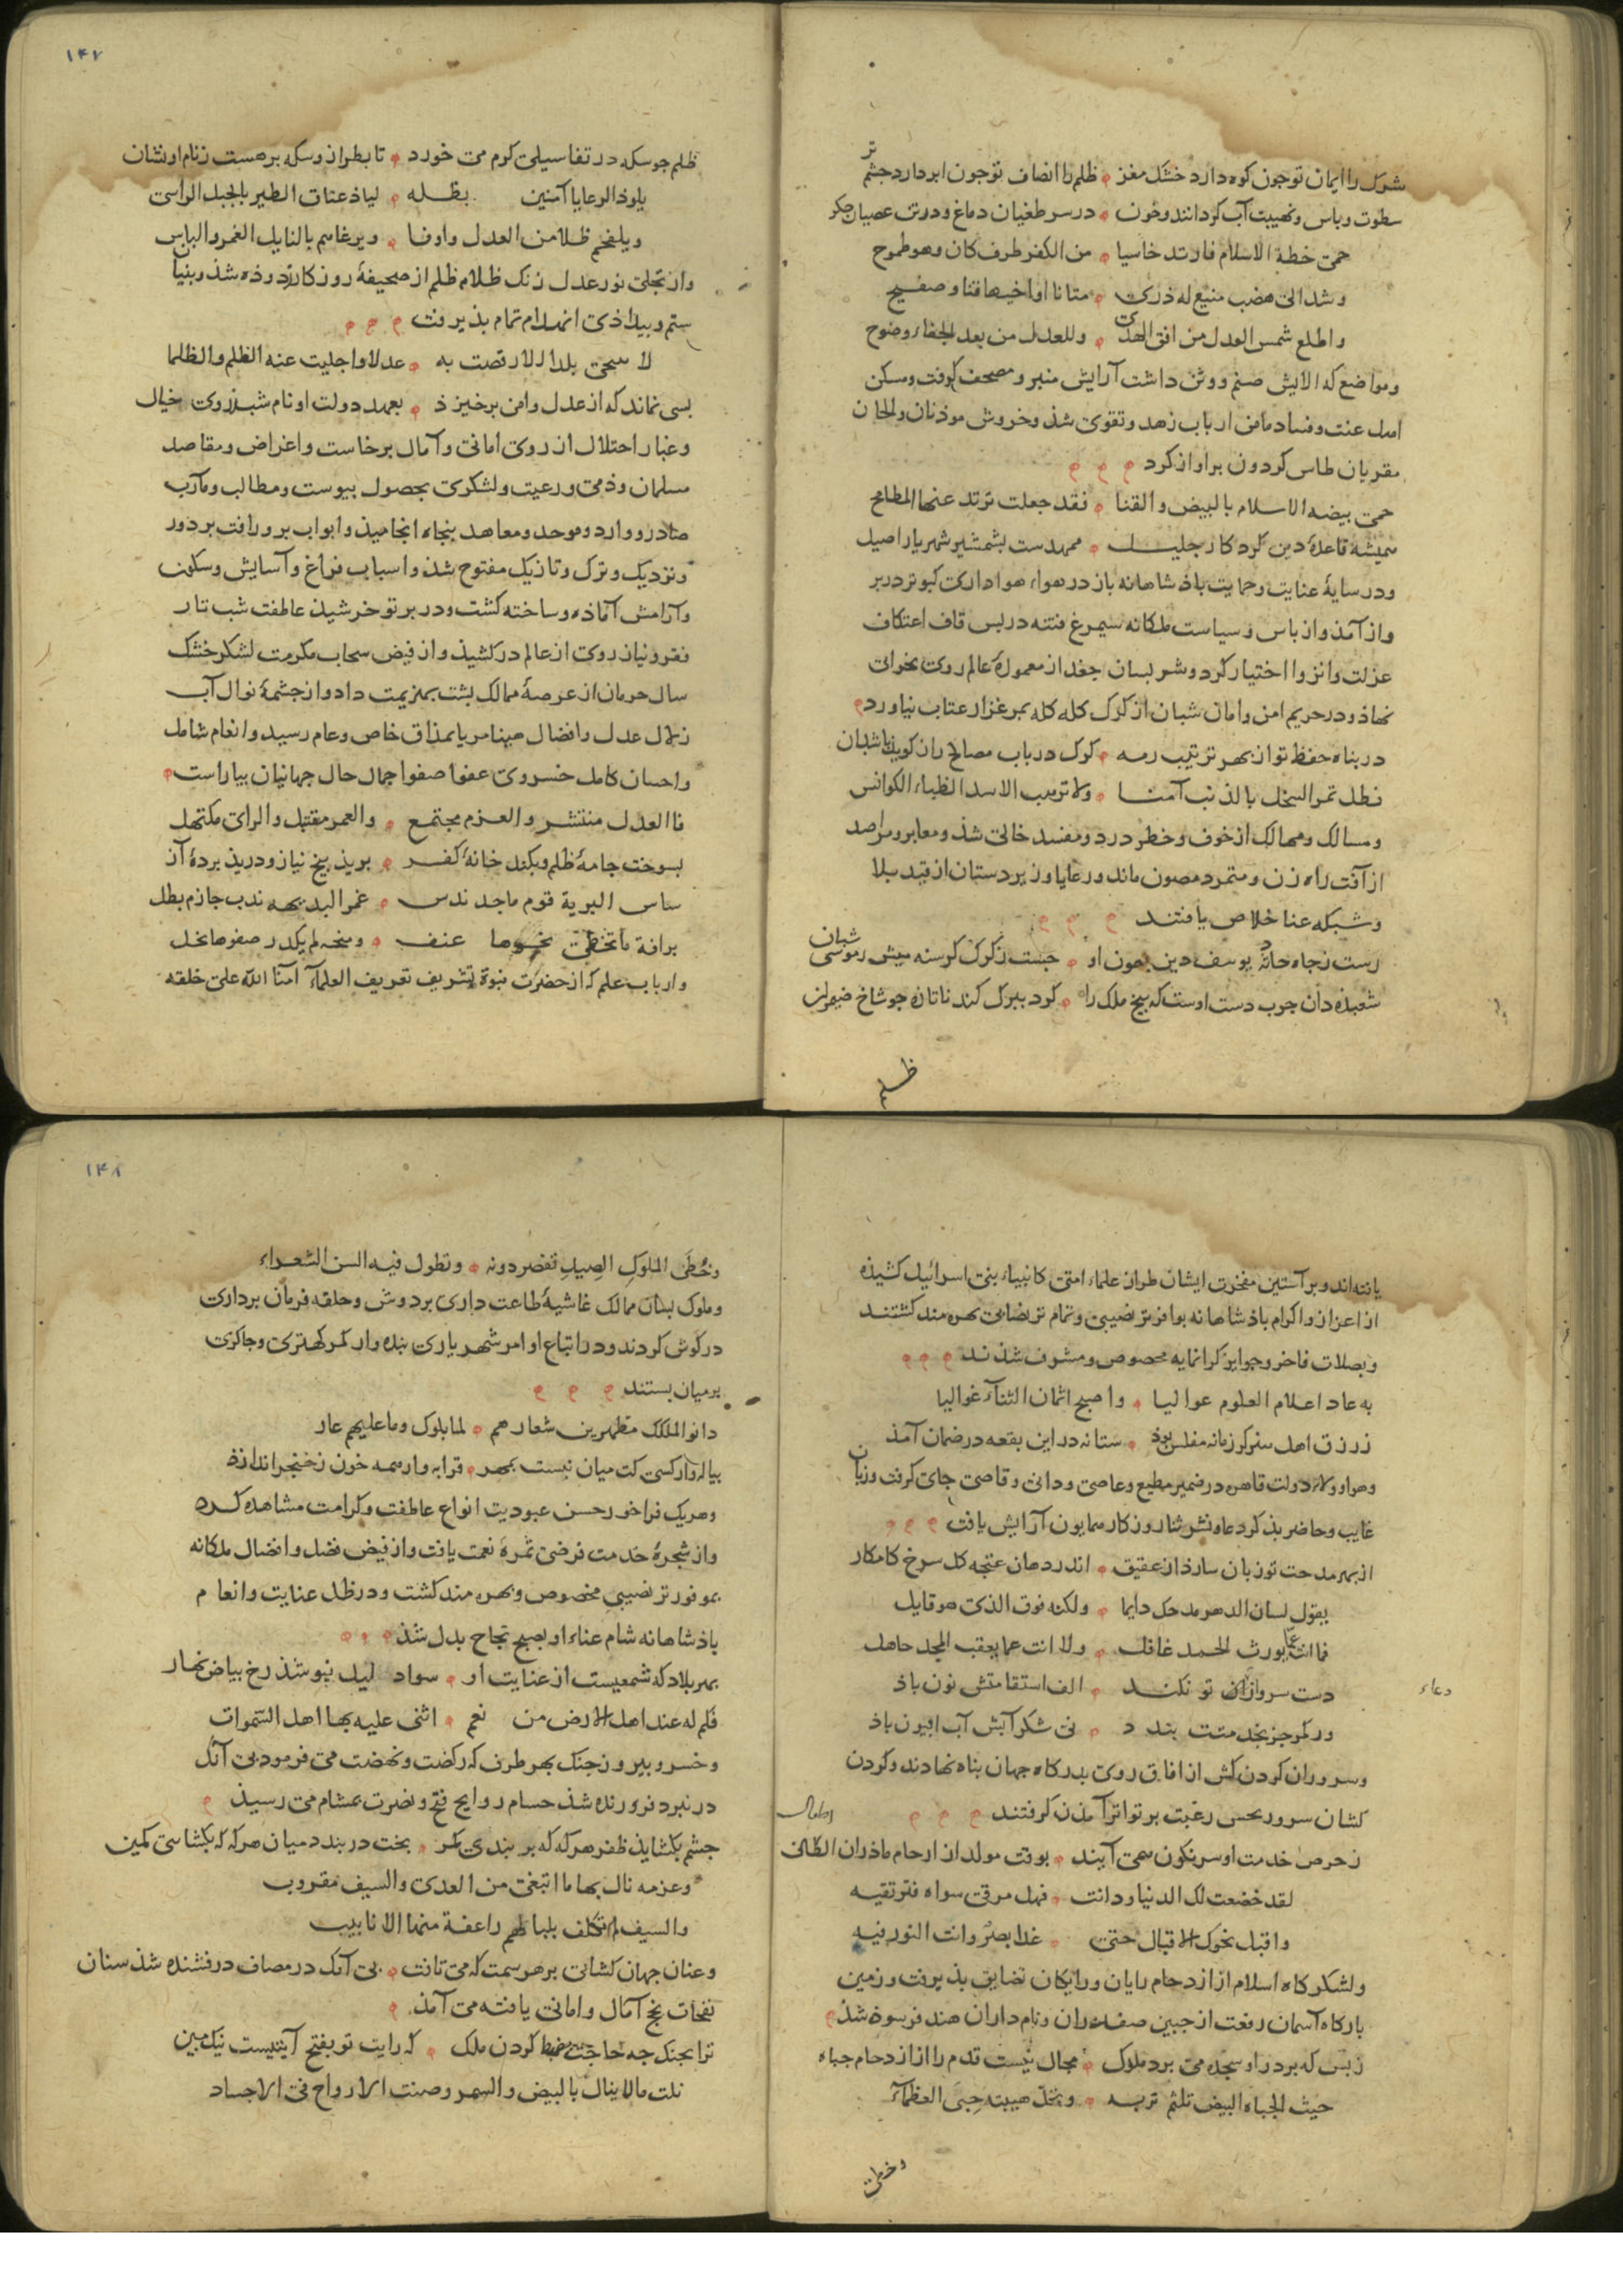 شرک را ایمان تو چون کوه دارد خشک مغز ظلم را انصاف تو چون ابر دارد چشم تر
سطوت و باس و نهیبت آب کردانند و خون در سر طغیان دماغ و در تن عصیان جکر
حمی خطة الاسلام فارتد خاسیا من الکفر طرف کان وهو طموح
وشد الی هضب منیع له ذری متانا اواخیها قنا وصفیح
واطلع شمس العدل من افق الهدی وللعدل من بعد الخفاء وضوح
ومواضع که الایش صنم ووثن داشت آرایش منبر ومصحف کرفت ومسکن
اهل عنت وفساد مامن ارباب زهد وتقوی شذ وخروش موذنان والحان
مقریان طاس کردون براواز کرد
حمی بیضه الاسلام بالبیض والقنا فقد جعلت ترتد عنها المطامح
همیشه قاعدهٔ دین کرد کار جلیل ممهدست بشمشیر شهریار اصیل
ودر سایهٔ عنایت وحمایت باذشاهانه باز در هواء هواداری کبوتر در بر
واز آمذ واز باس وسیاست ملکانه سیمرغ فتنه در پس قاف اعتکاف
عزلت وانزوا اختیار کرد وشر لسان جغد از معمورهٔ عالم روی بخرابی
نهاذ ودر حریم امن وامان شبان از کرک کله کله بمرغزار عتاب نیاورد
در بناه حفظ تو از بهر ترتیب رمه کرک در باب مصالح ران کوید با شبان
فظل تمر السخل بالذئب آمنا ولا ترهب الاسد الظباء الکوانس
ومسالک وممالک از خوف وخطر درد ومفسد خالی شذ ومعابر ومراصد
از آفت راه زن ومتمرد مصون ماند ورعایا وزیردستان از قید بلا
وشبکه عنا خلاص یافتند
رست ز جاه حادثه یوسف دین بعون او جست ز کرک کرسنه میش ز موسی شبان
شعبذه دان جرب دست اوست که بیخ ملک را کرد ببرک کند نا تازه جو شاخ ضیمران
ظلم
۱۴۷
ظلم جو سکه در تفا سیلی کرم می خورد تا بطراز وسکه بر هست ز نام او نشان
یلوذ الرعایا آمنین بظله لیاذ عتاق الطیر بالجبل الراسی
ویلفحم ظلا من العدل وارفا ویرغاهم بالنایل الغمر والباس
واز تجلی نور عدل زنک ظلام ظلم از صحیفهٔ روزکار زدوذه شذ وبنیا
ستم وبیداذی انهدام تمام بذیرفت
لا سمحی بلدا الا رقصت به عدلا واجلیت عنه الظلم والظلما
بسی نماند که از عدل وامن برخیزذ بعهد دولت او نام شبلز وی خیال
وغبار احتلال از روی امانی وآمال برخاست واغراض ومقاصد
مسلمان وذمی ورعیت ولشکری بحصول بیوست ومطالب ومآرب
صادر ووارد وموحد ومعاهد بنجاه انجامیذ وابواب بر ورافت بر دور
ونزدیک وترک وتازیک مفتوح شذ واسباب فراغ وآسایش وسکون
وآرامش آماذه وساخته کشت ودر پرتو خرشیذ عاطفت شب تار
فقر ونیاز روی از عالم درکشیذ واز فیض سحاب مکرمت لشکر خشک
سال حرمان از عرصهٔ ممالک بشت بهزیمت داد واز جشمهٔ نوال آب
زلال عدل وافضال هنیا مریا بمذاق خاص وعام رسید وانعام شامل
واحسان کامل خسروی عفوا صفوا جمال حال جهانیان بیاراست
فالعدل منتشر والعزم مجتمع والعمر مقتبل والرای مکتهل
بسوخت جامهٔ ظلم وبکند خانهٔ کفر بریذ بیخ نیاز ودریذ بردهٔ آز
ساس البریة قوم ماجد ندس غمر البدیهه ندب جازم بطل
برافة ما تخطی نحوها عنف ومنحه لم یکدر صفوها بخل
وارباب علم که از حضرت نبوة تشریف تعریف العلماء امنا الله علی خلقه
یافته اند وبر آستین مفخرت ایشان طراز علماء امتی کانبیاء بنی اسرائیل کشیذه
از اعزاز واکرام باذشاهانه بوافرتر نصیبی وتمام تر نصابی بهره مند کشتند
وبصلات فاخر وجوایز کرانمایه مخصوص ومشرف شذند
به عاد اعلام العلوم عوالیا واصبح اثمان الثناء غوالیا
زرزق اهل هنر کر زمانه مفلس بوذ ستانه در این بقعه در ضمان آمذ
وهوا وولاء دولت قاهره در ضمیر مطیع وعاصی ودانی وقاصی جای کرفت وزبان
غایب وحاضر بذکر دعا ونشر ثنا روزکار همایون آرایش یافت
از بهر مدحت تو زبان سازذ از عقیق اندر دهان غنچه کل سرخ کامکار
یقول لسان الدهر مدحک دایما ولکنه فوق الذی هو قایل
فما انت عما یورث الحمد غافل ولا انت عما یعقب المجد جاهل
دعاء
دست سرو از ان تو نکند الف استقامتش نون باذ
ور کمر جز بخدمتت بندد نی شکر آبش آب افیون باذ
وسروران کردن کش از افاق روی بدرکاه جهان بناه نهادند وکردن
کشان سرور بحس رغبت بر تواتر آمذن کرفتند
ز حرص خدمت او سرنکون همی آیند بوقت مولد از ارحام ماذران اطفال
لقد خضعت لک الدنیا ودانت فهل مرقی سواه فترتقیه
واقبل نحوک الاقبال حتی غدا بصر وانت النور فیه
ولشکرکاه اسلام از ازدحام رایان ورایکان تضایق بذیرفت وزمین
بارکاه آسمان رفعت از جبین صفدران ونام داران هند فرسوذه شذ
ز بس که بر در او سجده می برد ملوک مجال نیست قدم را از ازدحام جباه
حیث الجباه البیض تلثم تربه وتحل هیبته حبی العظماء
وخطی
۱۴۸
وخُطَی الملوکِ الصِیدِ تقصر دونه وتطول فیه السن الشعراء
وملوک بسان ممالک غاشیهٔ طاعت داری بر دوش وحلقه فرمان برداری
در کوش کردند ودر اتباع اوامر شهریاری بنده وار کمر کهتری وجاکری
بر میان بستند
دانوا لملک مظهرین شعارهم لما بلوک وما علیهم عار
بیاله وار کسی کت میان نبست بمهر قرابه وار همه خون ز خنجر اندازذ
وهر یک فراخور حسن عبودیت انواع عاطفت وکرامت مشاهده کرد
واز شجرهٔ خدمت فرضی ثمرهٔ نعمت یافت واز فیض فضل وافضال ملکانه
بموفورتر نصیبی مخصوص وبهره مند کشت ودر ظل عنایت وانعام
باذشاهانه شام عناء او بصبح نجاح بدل شذ
بهر بلاد که شمعیست از عنایت او سواد لیل نبوشذ رخ بیاض نهار
فکم له عند اهل الارض من نعم اثنی علیه بها اهل السموات
وخسرو بیروز جنک بهر طرف که رکضت ونهضت می فرمود بی آنک
در نبرد فروزنده شذ حسام روایح فتح ونصرت بمشام می رسیذ
جشم بکشایذ ظفر هر که که بر بندی کمر بخت دربندد میان هر که که بکشایی کمین
وعزمه نال بها ما ابتغی من العدی والسیف مقروب
والسیف لم تکلف بلباطهم راعفة منها الانابیب
وعنان جهان کشایی بر هر سمت که می تافت بی آنک در مصاف درفشنده شذ سنان
نفحات نجح آمال وامانی یافته می آمذ
ترا بجنک جه حاجت ضبط کردن ملک که رایت تو بفتح آیتیست نیک مبین
نلت مالا ینال بالبیض والسمر وصنت الارواح فی الاجساد